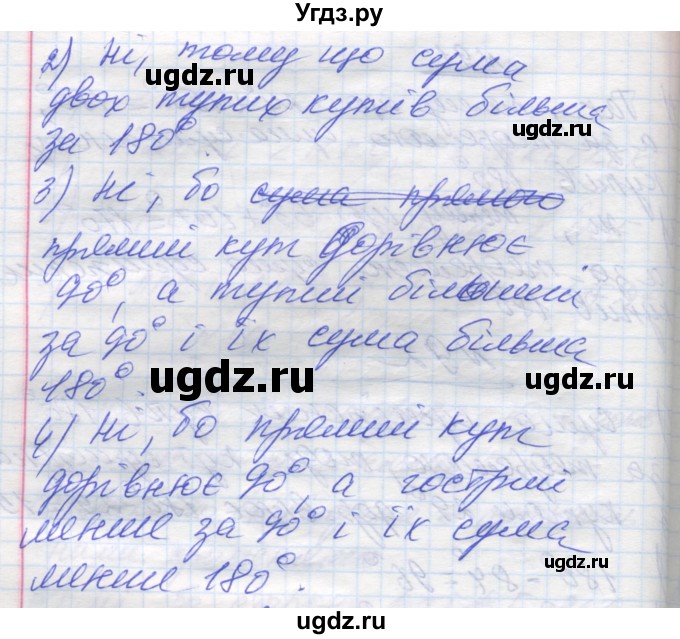 Угдз.ру
2) Ні, тому що сума
ugdz.ru
ugdz.ru
двох тупих кутів більша
за 180°
ugdz.ru
ugdz.ru
3) Ні, бо сума прямого
прямий кут дорівнює
ugdz.ru
90°, а тупий більший
за 90° і їх сума більша
ugdz.ru
180°.
ugdz.ru
4) Ні, бо прямий кут
дорівнює 90°, а гострий
ugdz.ru
менше за 90° і їх сума
ugdz.ru
менше 180°.
ugdz.ru